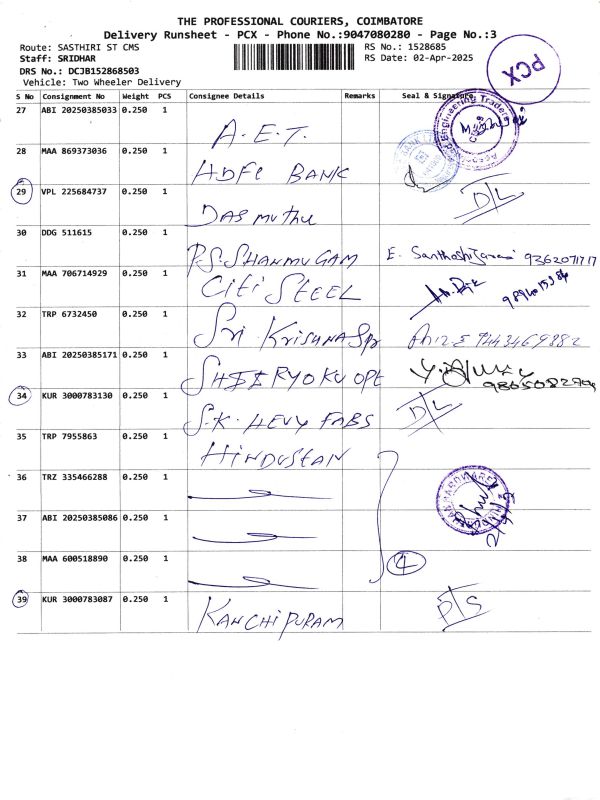 THE PROFESSIONAL COURIERS, COIMBATORE
Delivery Runsheet - PCX - Phone No.:9047080280 - Page No.:3
Route: SASTHIRI ST CMS RS No.: 1528685
Staff: SRIDHAR RS Date: 02-Apr-2025
DRS No.: DCJB152868503
Vehicle: Two Wheeler Delivery
PCX
S No Consignment No Weight PCS Consignee Details Remarks Seal & Signature
27 ABI 20250385033 0.250 1 A.E.T.
28 MAA 869373036 0.250 1 HDFC BANK
29 VPL 225684737 0.250 1 Das muthu D/L
30 DDG 511615 0.250 1 P.S. SHANMUGAM E. 9362071717
31 MAA 706714929 0.250 1 CiTi STEEL
32 TRP 6732450 0.250 1 Sri KRISHNA Spr 9443469882
33 ABI 20250385171 0.250 1 SHEERYOKU OPE
34 KUR 3000783130 0.250 1 S.K. HEVY FABS D/L
35 TRP 7955863 0.250 1 HINDUSTAN
36 TRZ 335466288 0.250 1
37 ABI 20250385086 0.250 1
38 MAA 600518890 0.250 1 4
39 KUR 3000783087 0.250 1 KANCHIPURAM D/S